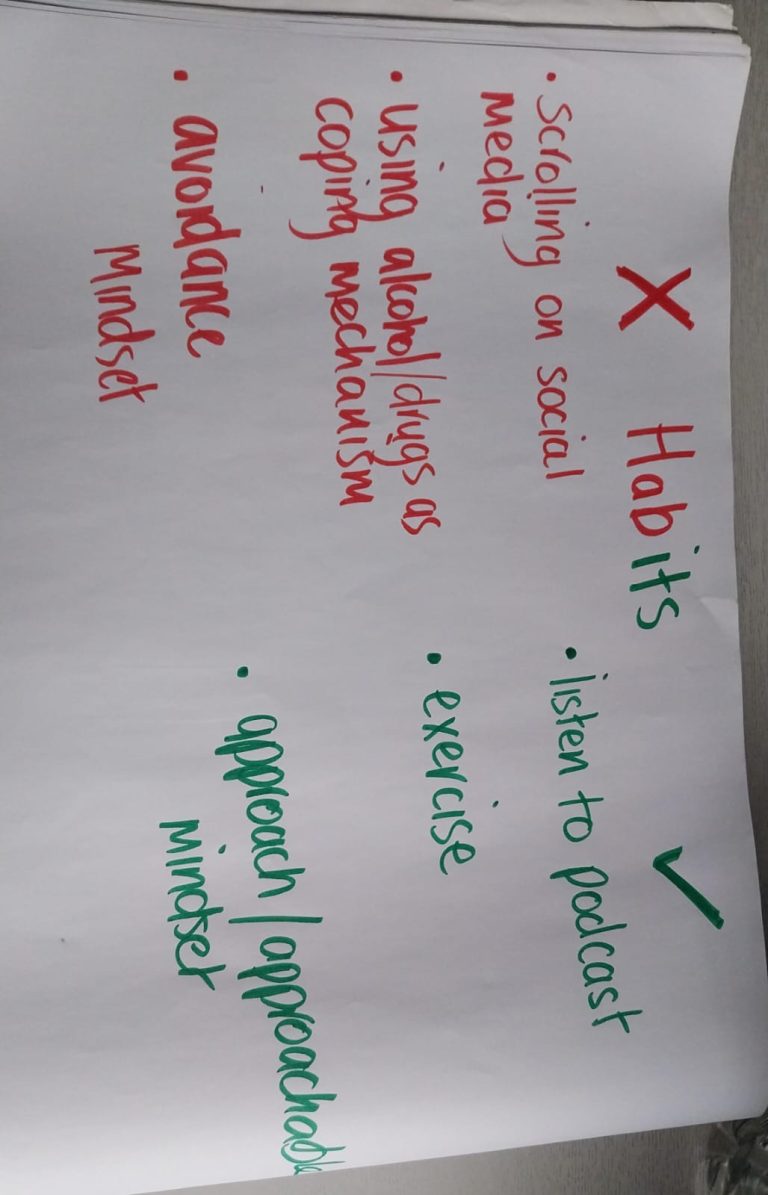 X Habits ✓
• scrolling on social
media
• using alcohol/drugs as
coping mechanism
• avoidance
Mindset
• listen to podcast
• exercise
• approach/approachable
Mindset